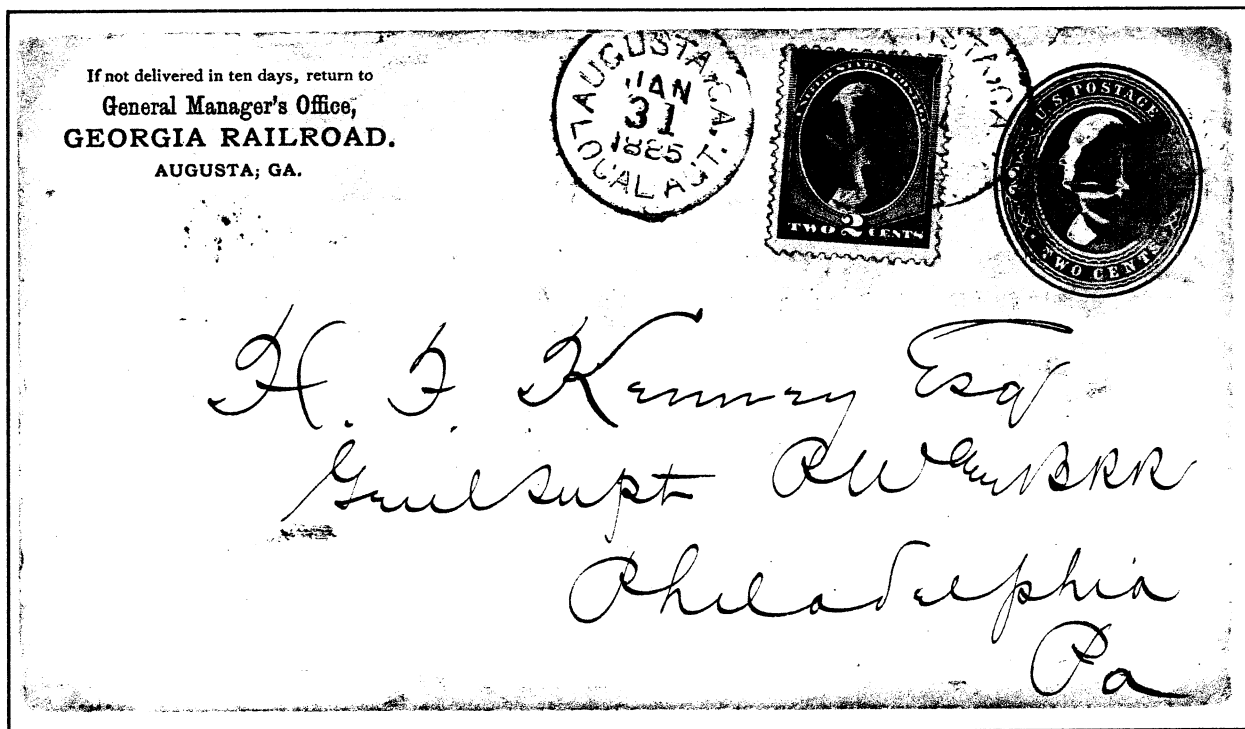 If not delivered in ten days, return to
General Manager's Office,
GEORGIA RAILROAD.
AUGUSTA, GA.
AUGUSTA, GA.
JAN
31
1885
LOCAL AG'T.
UNITED STATES POSTAGE
TWO 2 CENTS
U.S. POSTAGE
TWO CENTS
H. F. Kenney Esq
Genl Supt P W & BRR
Philadelphia
Pa